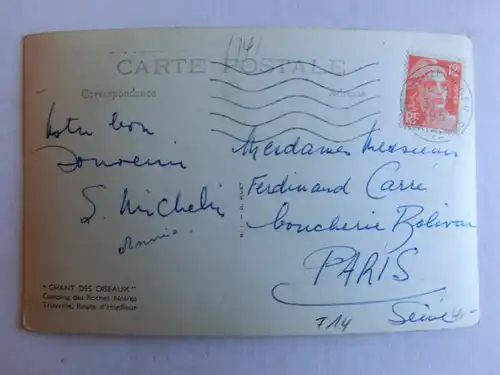 (14)
CARTE POSTALE
Correspondance
Adresse
RF
Notre bon
Souvenir
S. Michelin
Annie.
Mesdames Messieurs
Ferdinand Carré
boucherie Bolivar
PARIS
Seine
"CHANT DES OISEAUX"
Camping des Roches Noires
Trouville, Route d'Honfleur
T14